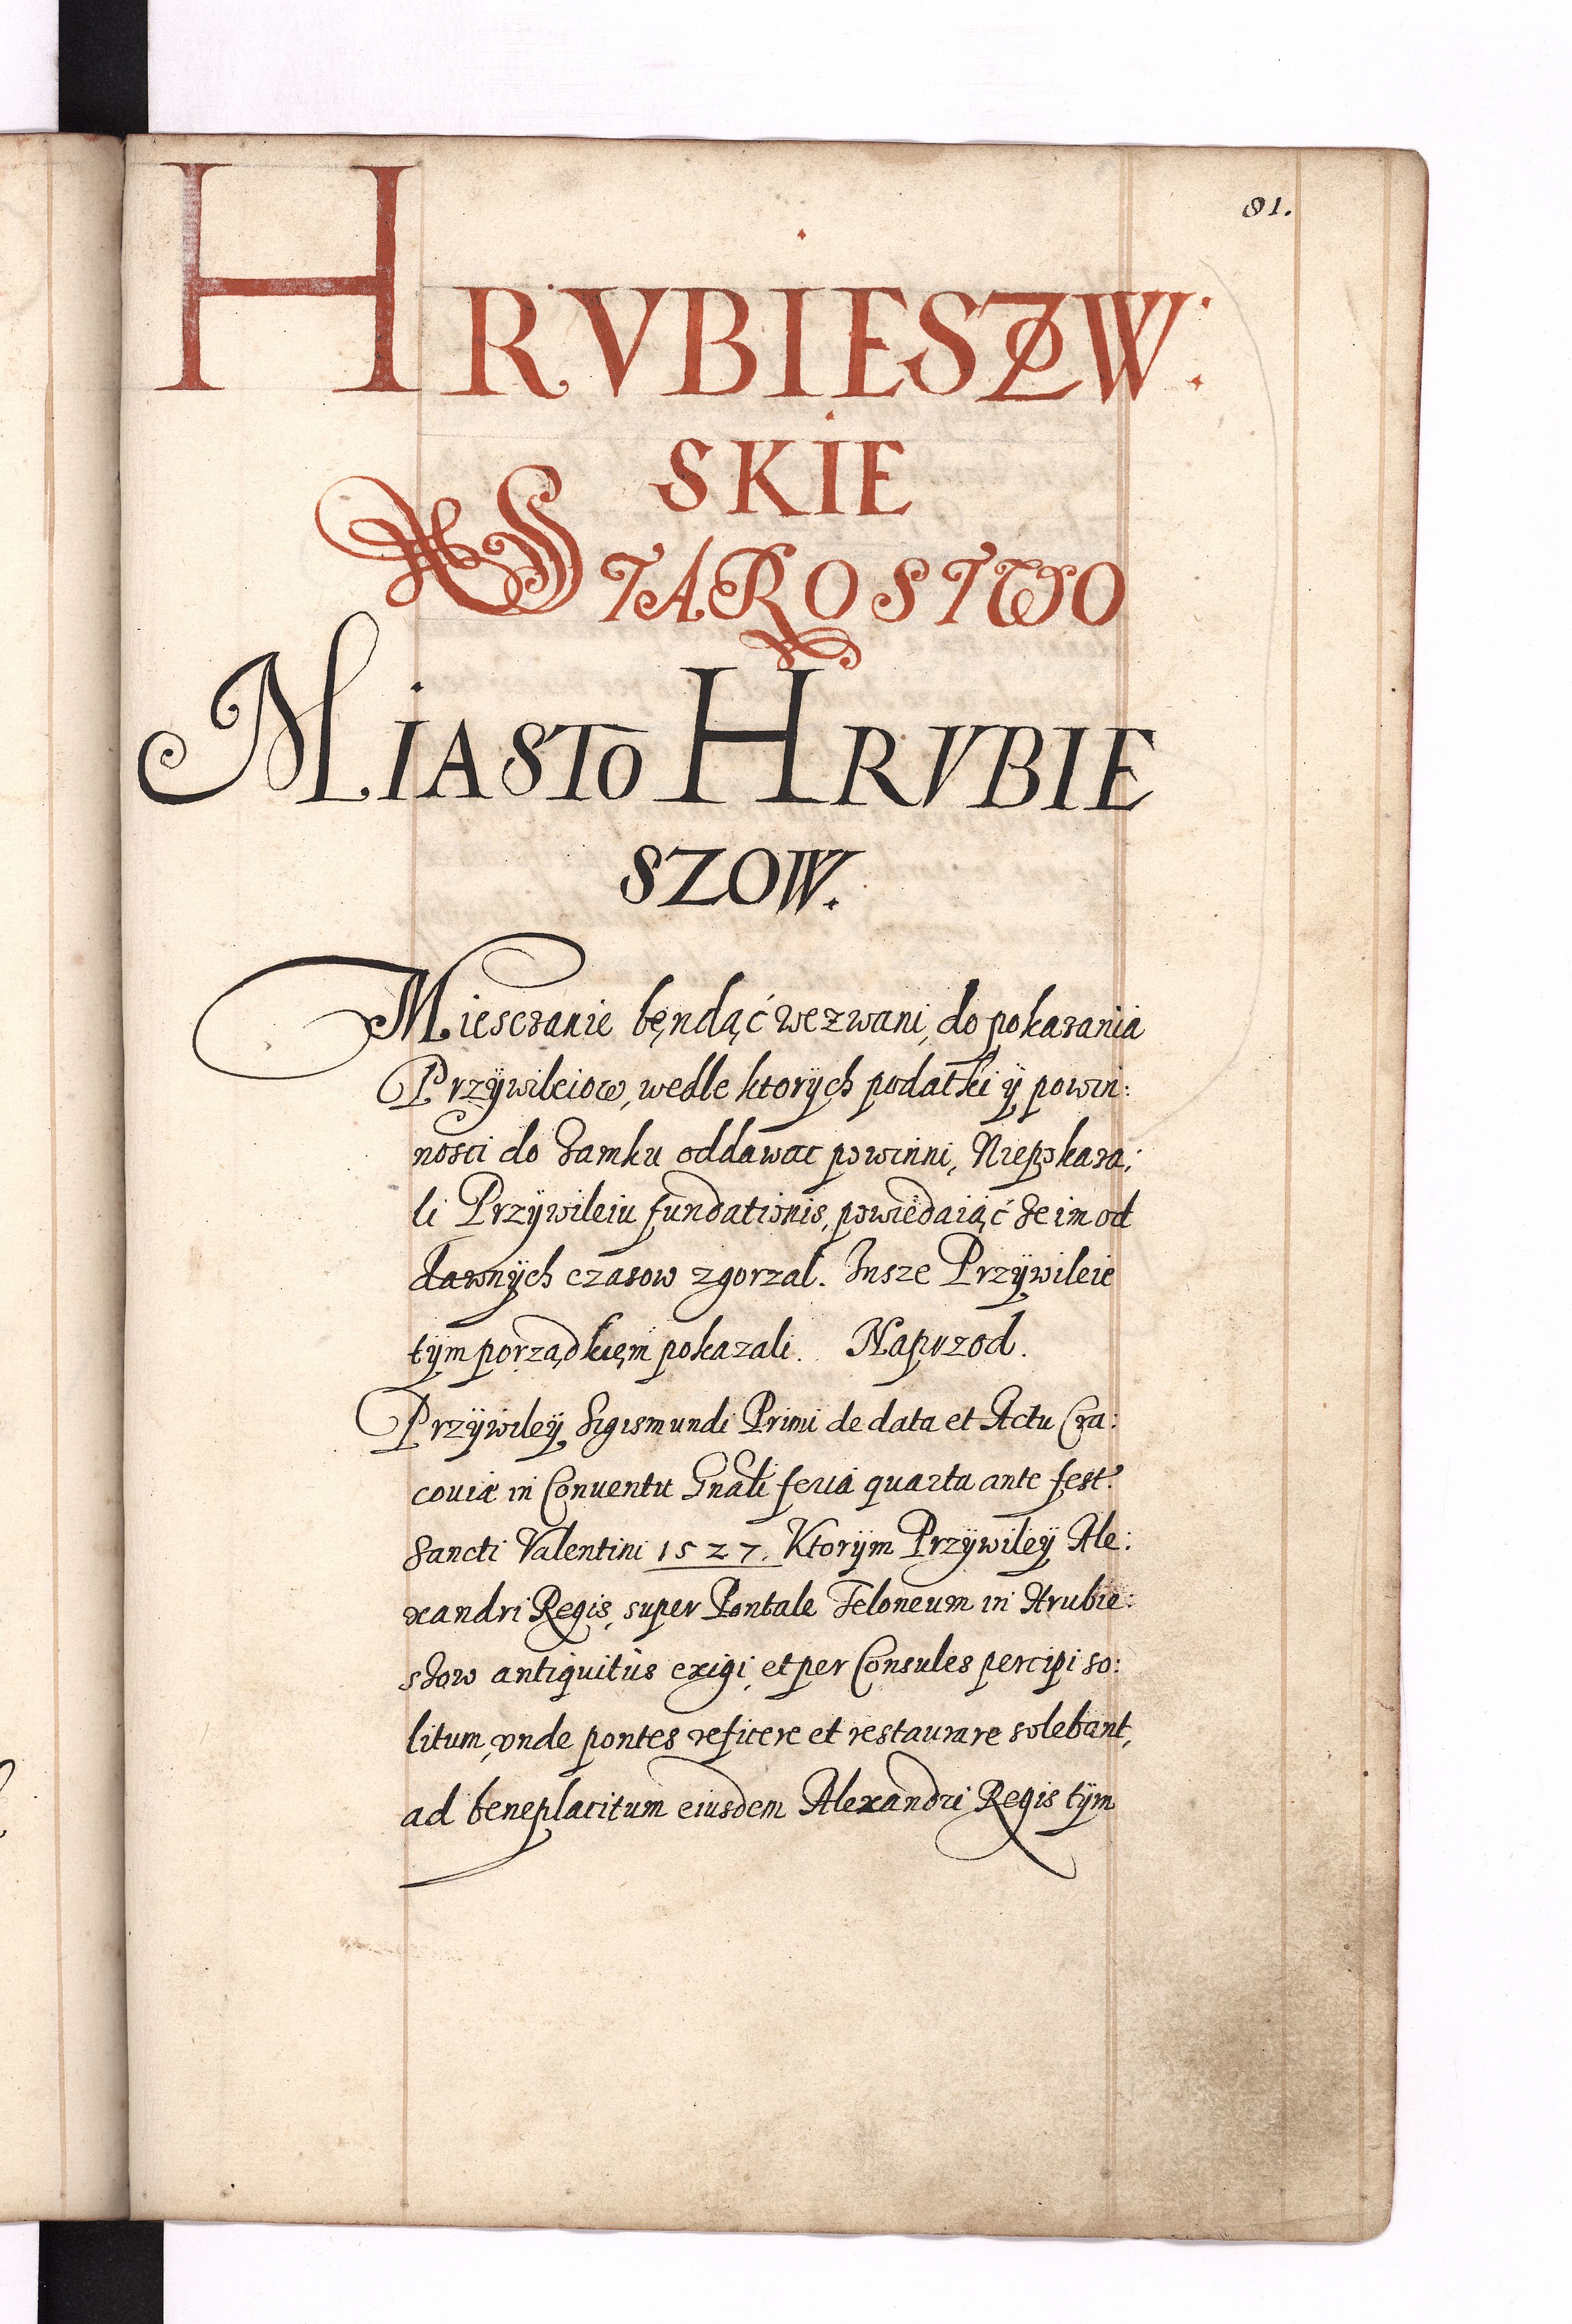 81.
HRVBIESZOW:
SKIE
STAROSTWO
MIASTO HRVBIE
SZOW.
Miesczanie będąć wezwani, do pokazania
Przÿwileiow, wedle ktorÿch podatki ÿ powin:
nosci do Zamku oddawac powinni, Niepokaza:
li Przÿwileiu fundationis, powiedaiąć ze im od
dawnÿch czasow zgorzal. Insze Przÿwileie
tÿm porządkięm pokazali. Naprzod.
Przÿwileÿ Sigismundi Primi de data et Actu Cra:
couiæ in Conuentu Gnali feria quarta ante fest:
Sancti Valentini 1527. Ktorÿm Przÿwileÿ Ale:
xandri Regis, super Pontale Teloneum in Hrubie:
szow antiquitus exigi, et per Consules percipi so:
litum, vnde pontes reficere et restaurare solebant,
ad beneplacitum eiusdem Alexandri Regis tÿm